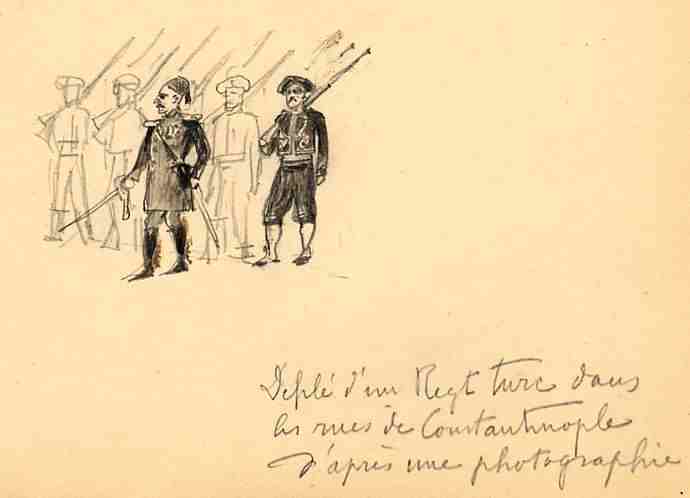 Défilé d'un Regt turc dans
les rues de Constantinople
d'après une photographie